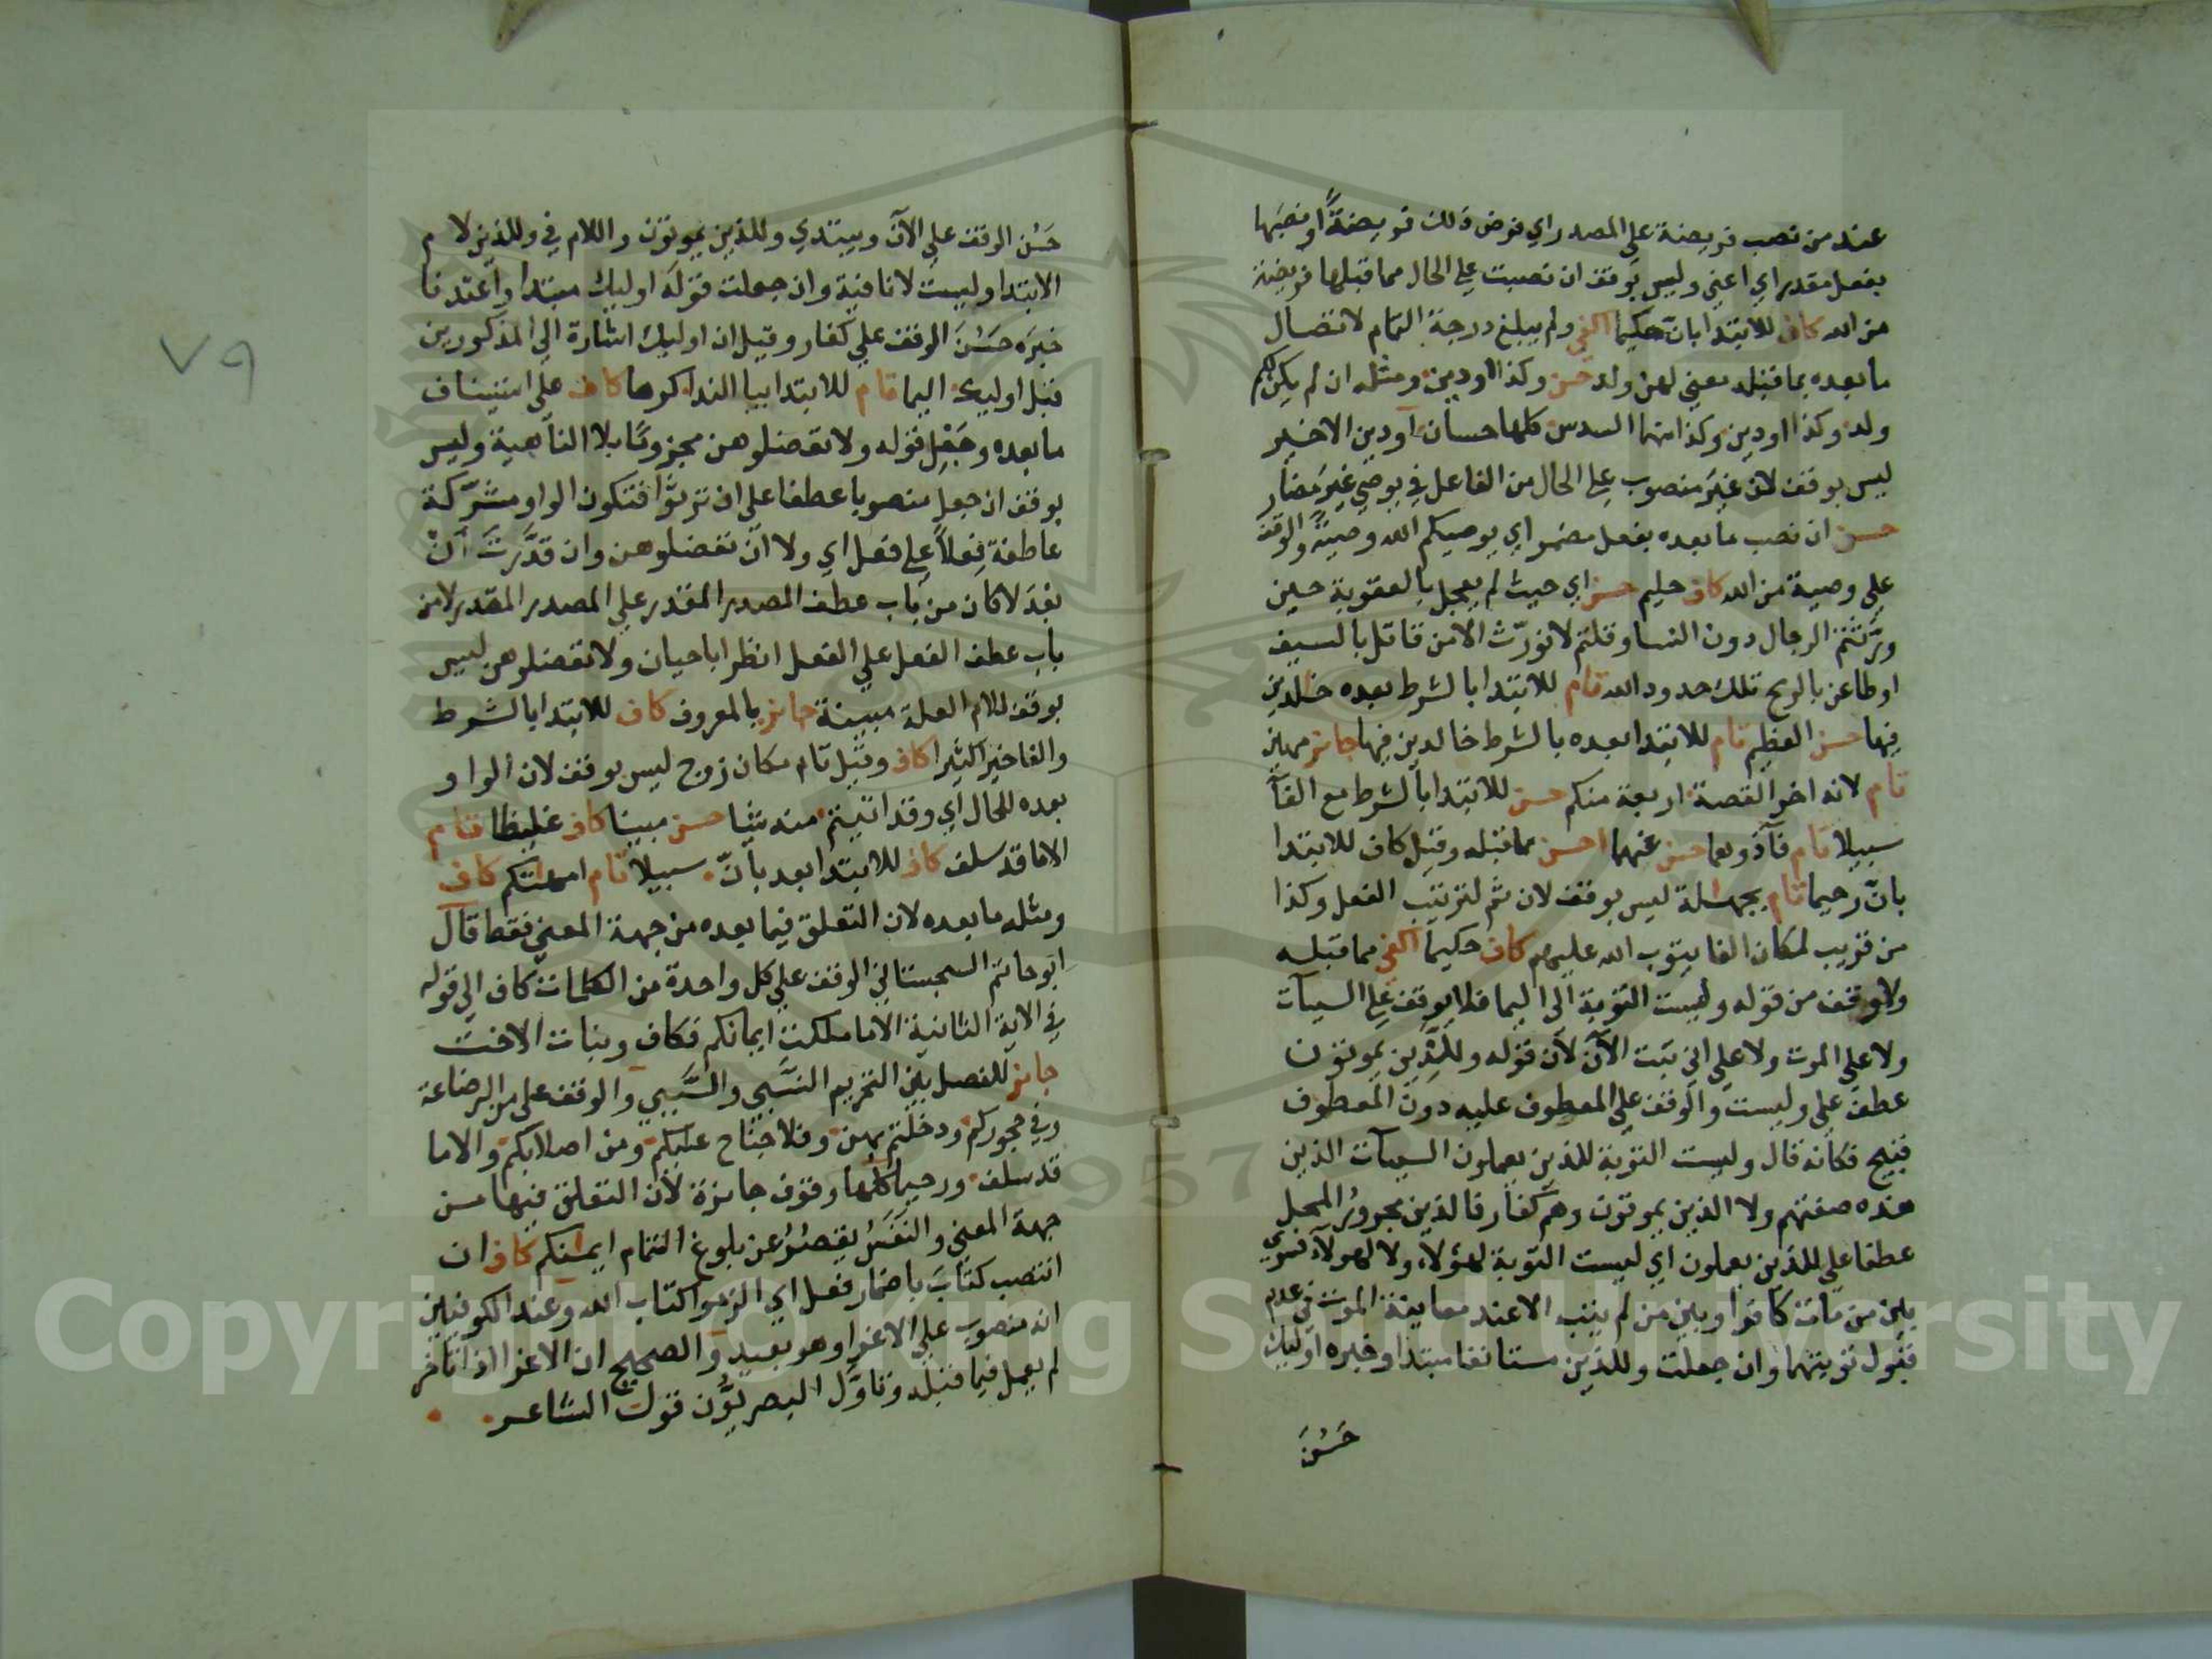 عند من نصب فريضة على المصدر اي فرض ذلك فريضةً او نصبها
بفعل مقدر اي اعني وليس بوقف ان نصبت على الحال مما قبلها فريضة
من الله كاف للابتدا بانّ حكيما اكفى ولم يبلغ درجة التمام لاتصال
ما بعده بما قبله معنى لهن ولد حسن وكذا او دين ومثله ان لم يكن لكم
ولد وكذا او دين وكذا منهما السدس كلها حسان او دين الاخير
ليس بوقف لان غيرَ منصوب على الحال من الفاعل في يوصى غيرَ مضار
حسن ان نصب ما بعده بفعل مضمر اي يوصيكم الله وصيةً والوقف
على وصية من الله كاف حليم حسن اي حيث لم يعجل بالعقوبة حين
ورّثتم الرجال دون النسا وقلتم لا نورّث الا من قاتل بالسيف
او طاعن بالرمح تلك حدود الله تام للابتدا بالشرط بعده خالدين
فيها حسن العظيم تام للابتدا بعده بالشرط خالدين فيها جايز مهين
تام لانه اخر القصة اربعة منكم حسن للابتدا بالشرط مع الفآ
سبيلا تام فآذوهما حسن عنهما احسن مما قبله وقيل كاف للابتدا
بانّ رحيما تام بجهالة ليس بوقف لان ثم لترتيب الفعل وكذا
من قريب لمكان الفا يتوب الله عليهم كاف حكيما اكفى مما قبله
ولا وقف من قوله وليست التوبة الى اليما فلا يوقف على السيآت
ولا على الموت ولا على اني تبت الآن لان قوله وللذين يموتون
عطف على وليست والوقف على المعطوف عليه دون المعطوف
قبيح فكانه قال وليست التوبة للذين يعملون السيآت الذين
هذه صفتهم ولا الذين يموتون وهم كفار فالذين مجرورُ المحل
عطفا على للذين يعملون اي ليست التوبة لهؤلاء ولا لهولآ فسوي
بين من مات كافرا وبين من لم يتب الا عند معاينة الموت في عدم
قبول توبتهما وان جعلت وللذين مستانفا مبتدا وخبره اوليك
حَسُنَ
٧٩
حَسُن الوقف على الآن ويبتدي وللذين يموتون واللام في وللذين لام
الابتدا وليست لا نافية وان جعلت قوله اوليك مبتدا واعتدنا
خبرَه حَسُنَ الوقف على كفار وقيل ان اوليك اشارة الى المذكورين
قبل اوليك اليما تام للابتدا بيا الندا كرها كاف على استيناف
ما بعده وجَعْلِ قوله ولا تعضلوهن مجزومًا بلا الناهية وليس
بوقف ان جعل منصوبا عطفا على ان ترثوا فتكون الواو مشرّكة
عاطفة فِعلًا على فعل اي ولا انْ تعضلوهن وان قدَّرتَ انْ
بعدَ لا كان من باب عطف المصدر المقدر على المصدر المقدر لا من
باب عطف الفعل على الفعل انظر ابا حيان ولا تعضلوهن ليس
بوقف للام العلة مبينة جايز بالمعروف كاف للابتدا بالشرط
والفا خيرا كثيرا كاف وقيل تام مكان زوج ليس بوقف لان الواو
بعده للحال اي وقد اتيتم منه شيا حسن مبينا كاف غليظا تام
الا ما قد سلف كاف للابتدا بعد بانّ سبيلا تام امهاتكم كاف
ومثله ما بعده لان التعلق فيما بعده من جهة المعنى فقط قال
ابو حاتم السجستاني الوقف على كل واحدة من الكلمات كاف الى قوله
في الاية الثانية الا ما ملكت ايمانكم فكاف وبنات الاخت
جايز للفصل بين التحريم النسَبي والسَّببي والوقف على من الرضاعة
وفي حجوركم ودخلتم بهن وفلا جناح عليكم ومن اصلابكم والا ما
قد سلف ورحيما كلها وقوف جايزة لان التعلق فيها من
جهة المعنى والنفَسُ يقصُرُ عن بلوغ التمام ايمانكم كاف ان
انتصب كتابَ باضمار فعل اي الزموا كتاب الله وعند الكوفيين
انه منصوب على الاغرا وهو بعيد والصحيح ان الاغرا اذا تاخر
لم يعمل فيما قبله وتاوَّل البصريُّون قول الشاعر